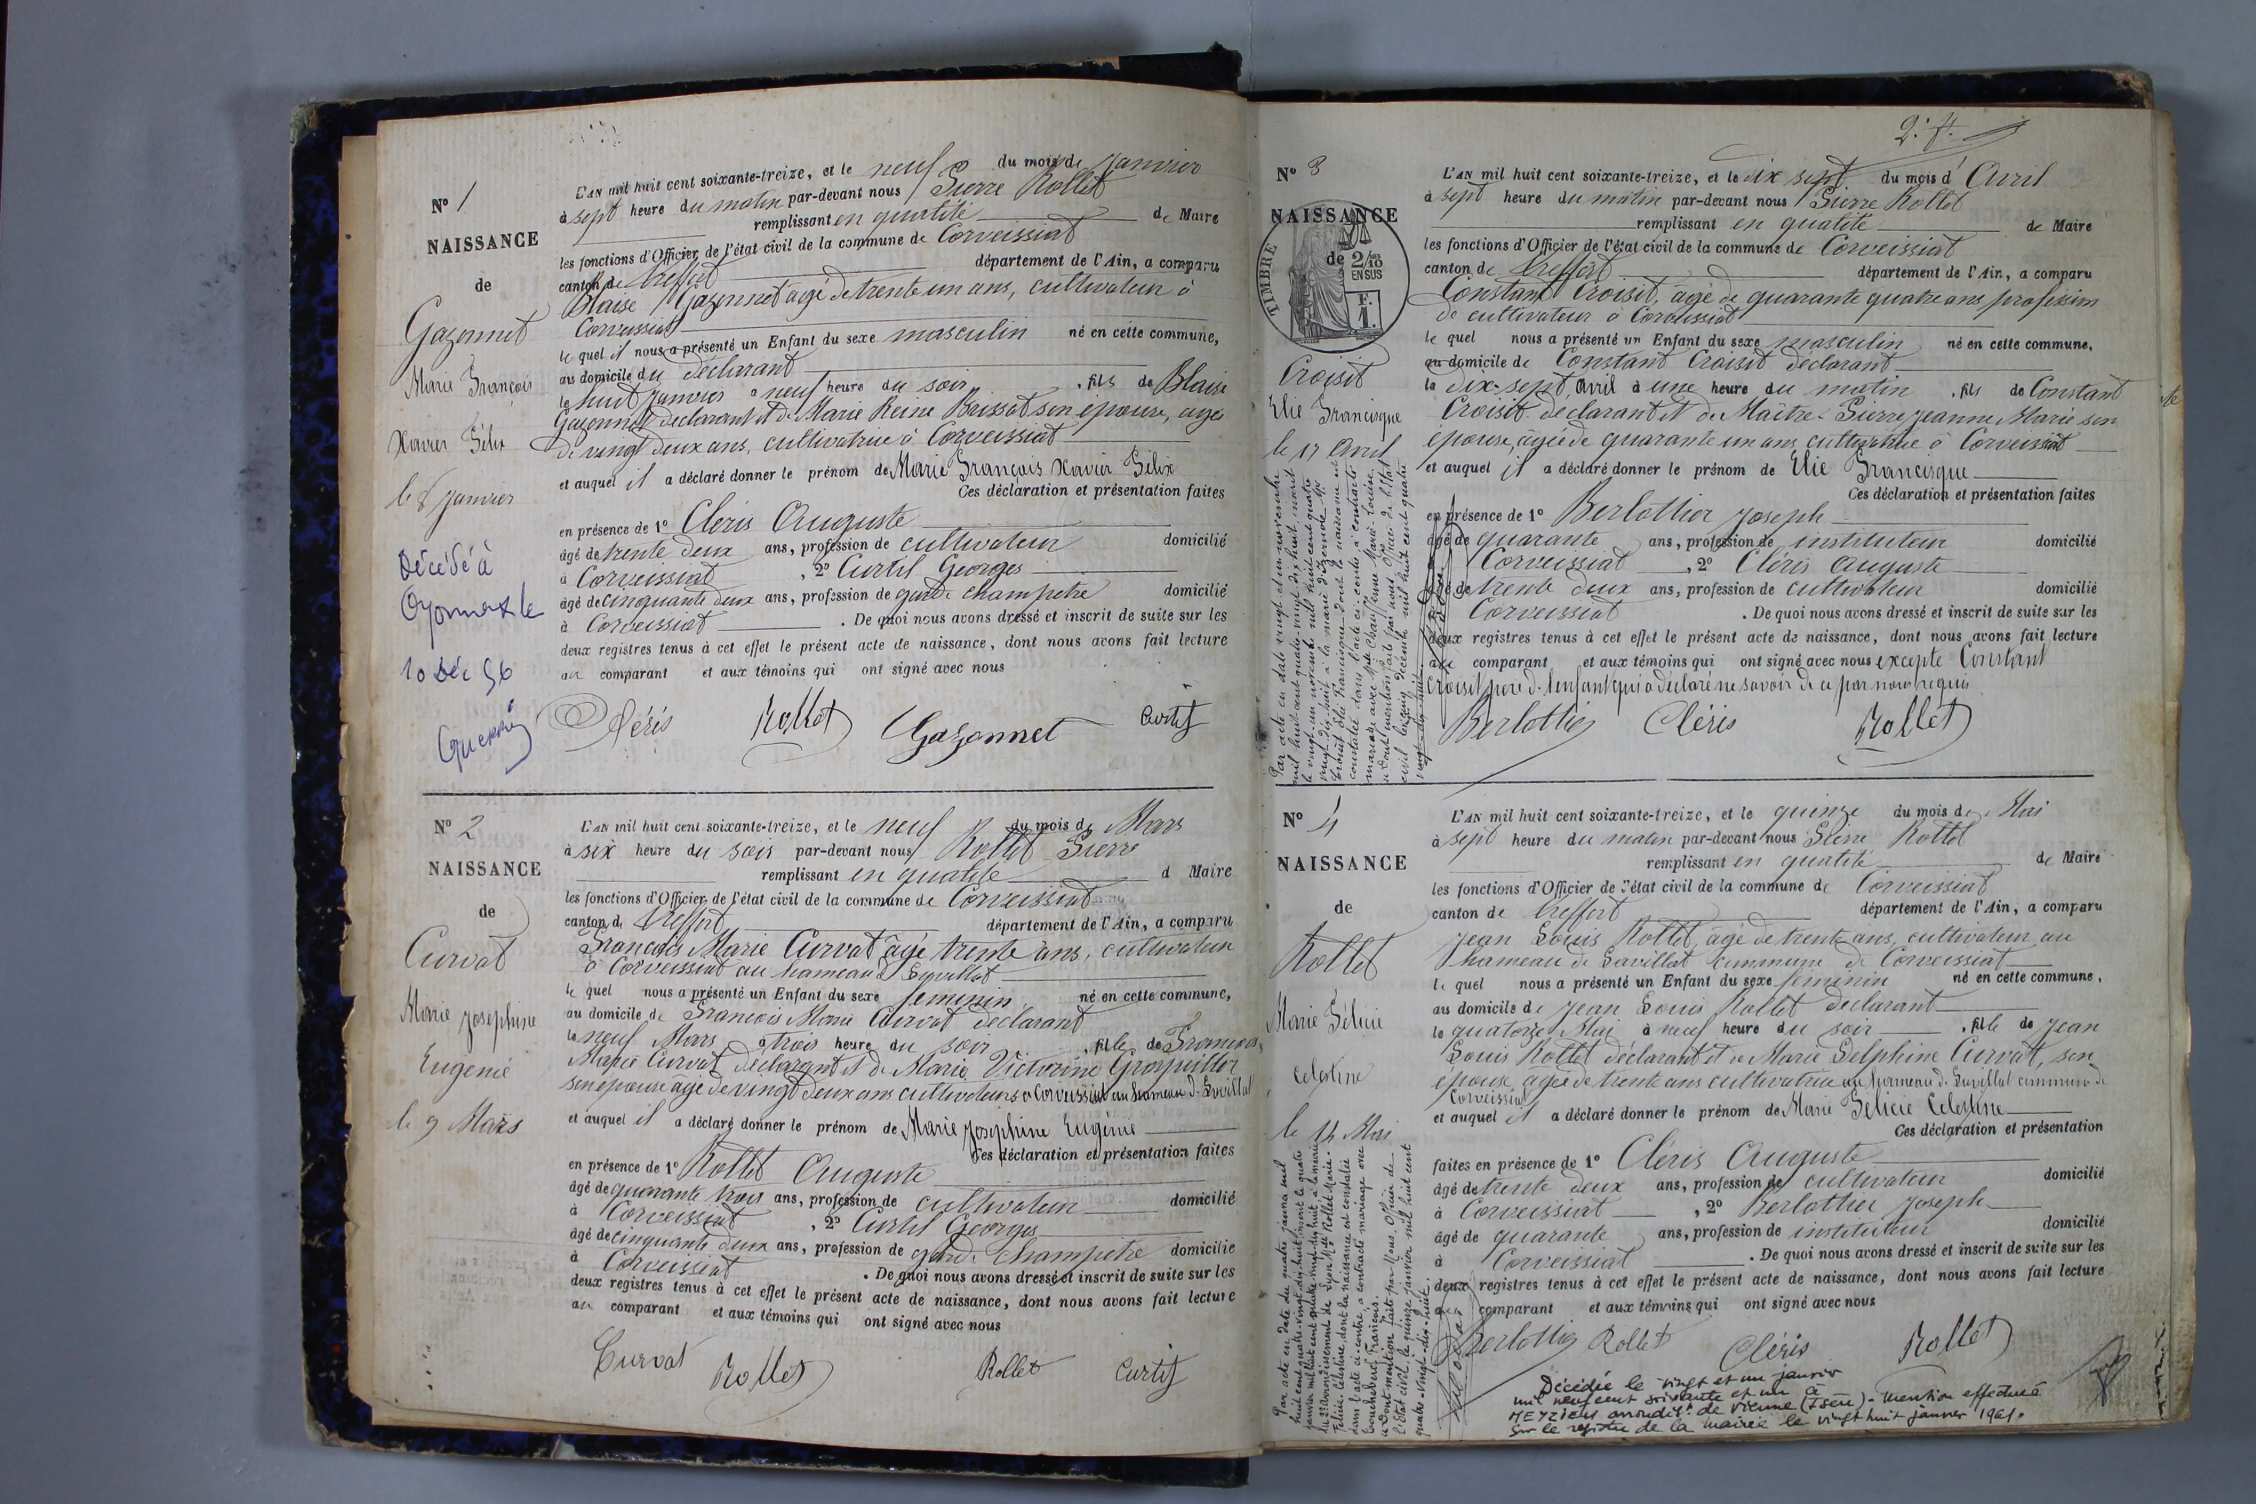 N° 1
NAISSANCE
de
Gazonnet
Marie François
Xavier Félix
le 8 Janvier
Décédé à
Oyonnax le
10 Déc 56
L'AN mil huit cent soixante-treize, et le neuf du mois de Janvier
à sept heure du matin par-devant nous Pierre Rollet
remplissant en qualité de Maire
les fonctions d'Officier de l'état civil de la commune de Corveissiat
canton de Treffort département de l'Ain, a comparu
Blaise Gazonnet âgé de trente un ans, cultivateur à
Corveissiat
le quel il nous a présenté un Enfant du sexe masculin né en cette commune,
au domicile du déclarant
le huit Janvier à neuf heure du soir, fils de Blaise
Gazonnet déclarant et de Marie Reine Buissat son épouse, agée
de vingt deux ans, cultivatrice à Corveissiat
et auquel il a déclaré donner le prénom de Marie François Xavier Félix
Ces déclaration et présentation faites
en présence de 1° Cléris Auguste
âgé de trente deux ans, profession de cultivateur domicilié
à Corveissiat, 2° Curtil Georges
âgé de cinquante deux ans, profession de garde champetre domicilié
à Corveissiat. De quoi nous avons dressé et inscrit de suite sur les
deux registres tenus à cet effet le présent acte de naissance, dont nous avons fait lecture
au comparant et aux témoins qui ont signé avec nous
Cléris Rollet Gazonnet Curtil
N° 2
NAISSANCE
de
Curvat
Marie Josephine
Eugénie
le 9 Mars
L'AN mil huit cent soixante-treize, et le neuf du mois de Mars
à six heure du soir par-devant nous Rollet Pierre
remplissant en qualité d Maire
les fonctions d'Officier de l'état civil de la commune de Corveissiat
canton de Treffort département de l'Ain, a comparu
François Marie Curvat âgé trente ans, cultivateur
à Corveissiat au hameau d
le quel nous a présenté un Enfant du sexe feminin né en cette commune,
au domicile de François Marie Curvat déclarant
le neuf Mars à trois heure du soir, fille de François
Marie Curvat déclarant et de Marie Victorine
son épouse âgé de vingt deux ans cultivateurs à Corveissiat au hameau d
et auquel il a déclaré donner le prénom de Marie Josephine Eugénie
Ces déclaration et présentation faites
en présence de 1° Rollet Auguste
âgé de quarante trois ans, profession de cultivateur domicilié
à Corveissiat, 2° Curtil Georges
âgé de cinquante deux ans, profession de garde champetre domicilié
à Corveissiat. De quoi nous avons dressé et inscrit de suite sur les
deux registres tenus à cet effet le présent acte de naissance, dont nous avons fait lecture
au comparant et aux témoins qui ont signé avec nous
Curvat Rollet Rollet Curtil
2. f.
N° 3
NAISSANCE
de
TIMBRE
2/10
EN SUS
F.
1.
Croisit
Elie Francisque
le 17 Avril
L'AN mil huit cent soixante-treize, et le dix sept du mois d'Avril
à sept heure du matin par-devant nous Pierre Rollet
remplissant en qualité de Maire
les fonctions d'Officier de l'état civil de la commune de Corveissiat
canton de Treffort département de l'Ain, a comparu
Constant Croisit, âgé de quarante quatre ans profession
de cultivateur à Corveissiat
le quel nous a présenté un Enfant du sexe masculin né en cette commune,
au domicile de Constant Croisit déclarant
le dix-sept avril à une heure du matin, fils de Constant
Croisit déclarant et de Maître-Pierre Jeanne Marie son
épouse, âgée de quarante un ans, cultivatrice à Corveissiat
et auquel il a déclaré donner le prénom de Elie Francisque
Ces déclaration et présentation faites
en présence de 1° Berlottier Joseph
âgé de quarante ans, profession de instituteur domicilié
Corveissiat, 2° Cléris Auguste
âgé de trente deux ans, profession de cultivateur domicilié
Corveissiat. De quoi nous avons dressé et inscrit de suite sur les
deux registres tenus à cet effet le présent acte de naissance, dont nous avons fait lecture
au comparant et aux témoins qui ont signé avec nous excepté Constant
Croisit père de l'enfant qui a déclaré ne savoir de ce par nous requis
Berlottier Cléris Rollet
Par acte en date vingt et un novembre
mil huit cent quatre-vingt dix huit, inscrit
le vingt un novembre mil huit cent quatre
vingt dix huit à la mairie d'Izernore Mr
Croisit Elie Francisque dont la naissance est
constatée dans l'acte ci-contre a contracté
mariage avec Mlle Marie-Louise.
Dont mention faite par nous Officier de l'Etat
civil
N° 4
NAISSANCE
de
Rollet
Marie Félicie
Celestine
le 14 Mai
L'AN mil huit cent soixante-treize, et le quinze du mois de Mai
à sept heure du matin par-devant nous Pierre Rollet
remplissant en qualité de Maire
les fonctions d'Officier de l'état civil de la commune de Corveissiat
canton de Treffort département de l'Ain, a comparu
Jean Louis Rollet, âgé de trente ans, cultivateur au
hameau de commune de Corveissiat
le quel nous a présenté un Enfant du sexe féminin né en cette commune,
au domicile de Jean Louis Rollet déclarant
le quatorze Mai à neuf heure du soir, fille de Jean
Louis Rollet déclarant et de Marie Delphine Curvat, son
épouse, âgée de trente ans cultivatrice au hameau d commune de
Corveissiat
et auquel il a déclaré donner le prénom de Marie Félicie Celestine
Ces déclaration et présentation
faites en présence de 1° Cléris Auguste
âgé de trente deux ans, profession de cultivateur domicilié
à Corveissiat, 2° Berlottier Joseph
âgé de quarante ans, profession de instituteur domicilié
à Corveissiat. De quoi nous avons dressé et inscrit de suite sur les
deux registres tenus à cet effet le présent acte de naissance, dont nous avons fait lecture
au comparant et aux témoins qui ont signé avec nous
Berlottier Rollet Cléris Rollet
Par acte en date du quatre janvier mil
huit cent quatre-vingt-dix-huit, inscrit le quatre
janvier mil huit cent quatre vingt dix huit à la mairie
du 2e arrondissement de Lyon Mlle Rollet Marie-
Félicie Célestine, dont la naissance est constatée
dans l'acte ci-contre, a contracté mariage avec
François.
Dont mention faite par Nous, Officier de
l'Etat civil, le quinze janvier mil huit cent
quatre-vingt-dix-huit.
Décédée le vingt et un janvier
mil neuf cent soixante et un à
MEYZIEUX arrondist de Vienne (Isère). mention effectuée
sur le registre de la mairie le vingt huit janvier 1961.